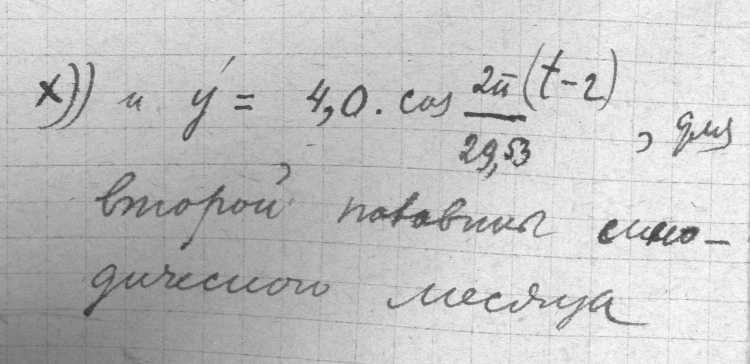 x)) и y' = 4,0 · cos 2π/29,53 (t-2), для
второй половины сино-
дического месяца